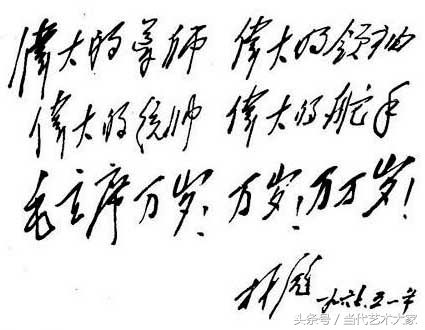 偉大的导师 偉大的领袖
偉大的统帅 偉大的舵手
毛主席万岁！万岁！万万岁！
林彪
一九六七.五.一年
头条号 / 当代艺术大家